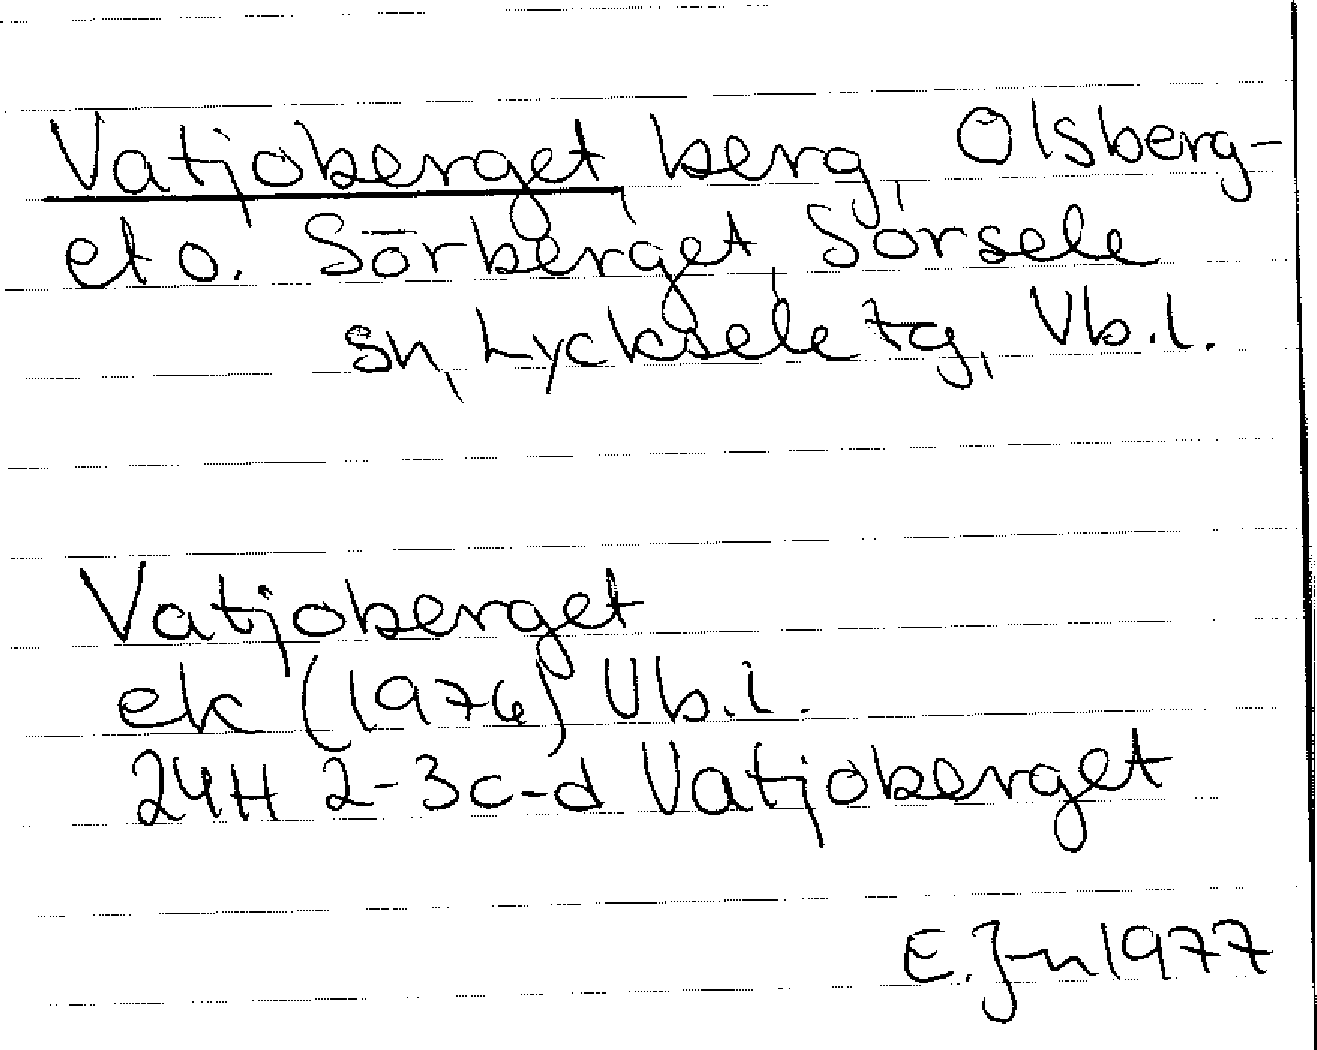 Vatjoberget, berg, Olsberg-
et o. Sörberget, Sorsele
sn, Lycksele tg, Vb.l.
Vatjoberget
ek (1976) Vb.l.
24H 2-3c-d Vatjoberget
E. J-n 1977